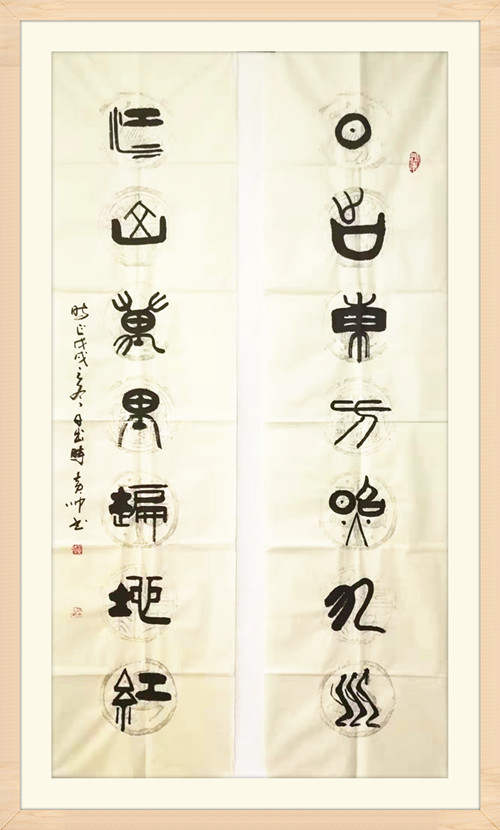 日出東方照九州
江山萬里遍地紅
時正戊戌之冬日出時 帅书